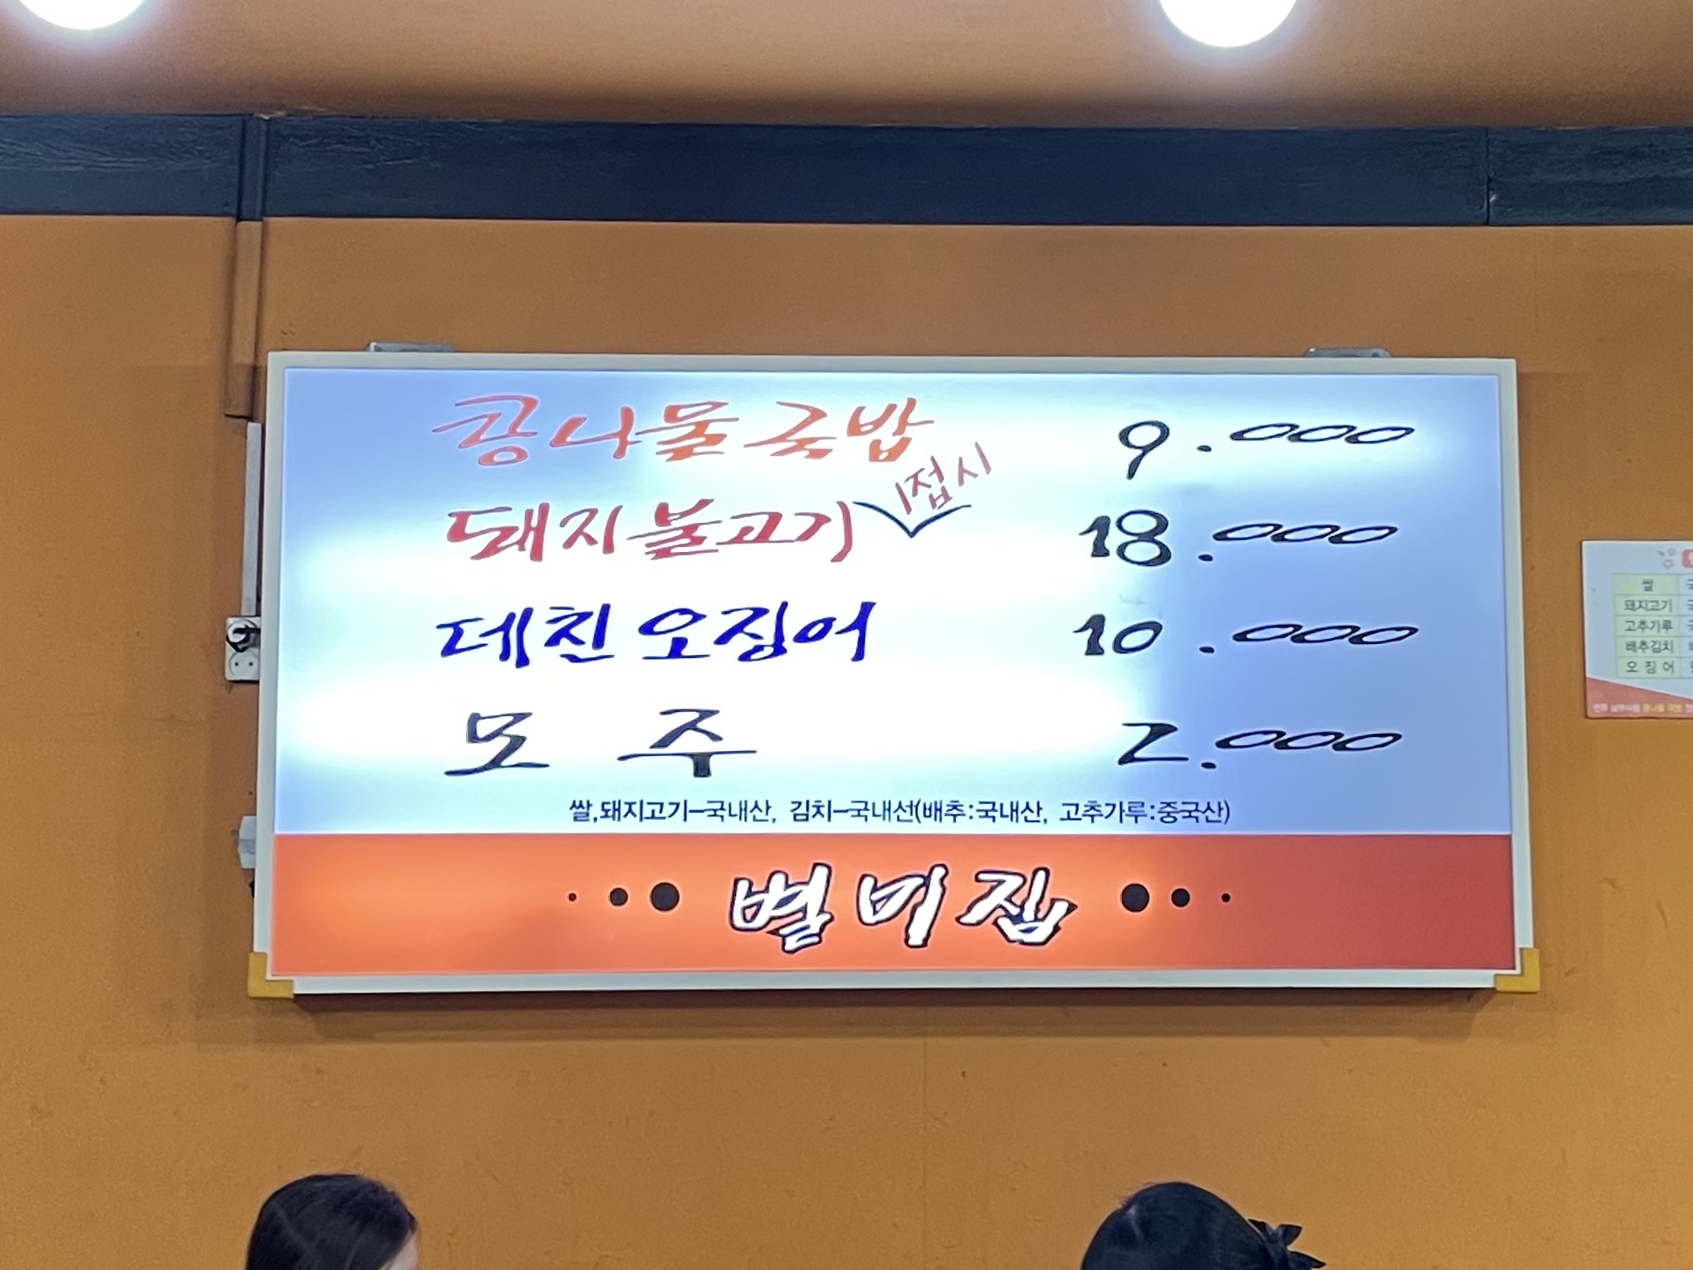 콩나물국밥 9.000
돼지불고기 1접시 18.000
데친오징어 10.000
모주 2.000
쌀,돼지고기-국내산, 김치-국내선(배추:국내산, 고추가루:중국산)
별미집
쌀
돼지고기
고추가루
배추김치
오징어